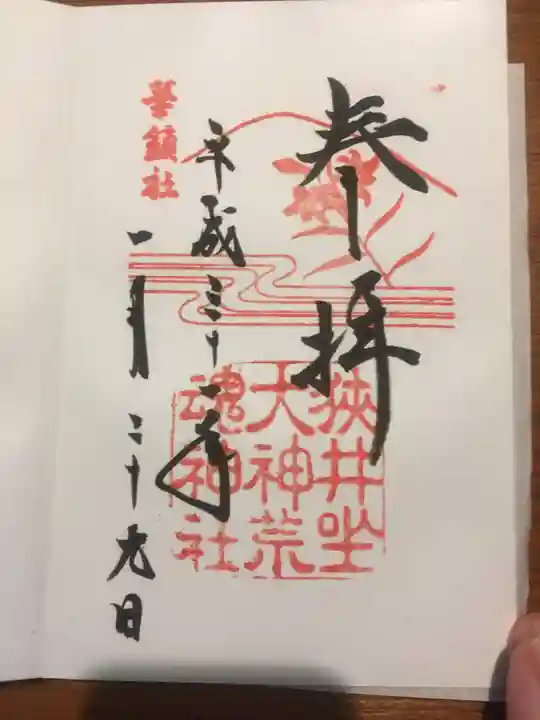 奉拝
狭井坐
大神荒
魂神社
平成三十一年
一月二十九日
華鎮社